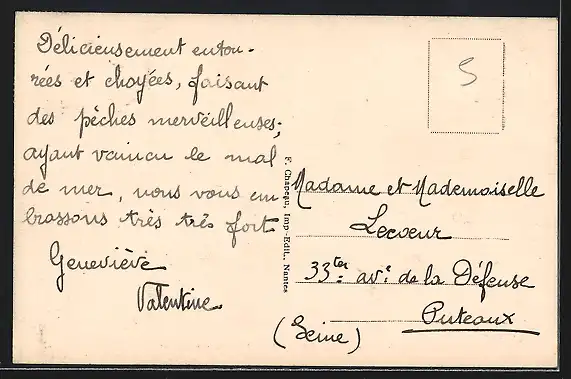 Délicieusement entou-
rées et choyées, faisant
des pêches merveilleuses;
ayant vaincu le mal
de mer, nous vous em
brassons très très fort
Geneviève
Valentine
F. Chapeau, Imp.-Edit., Nantes
5
Madame et Mademoiselle
Lecoeur
33ter av.e de la Défense
Puteaux
(Seine)